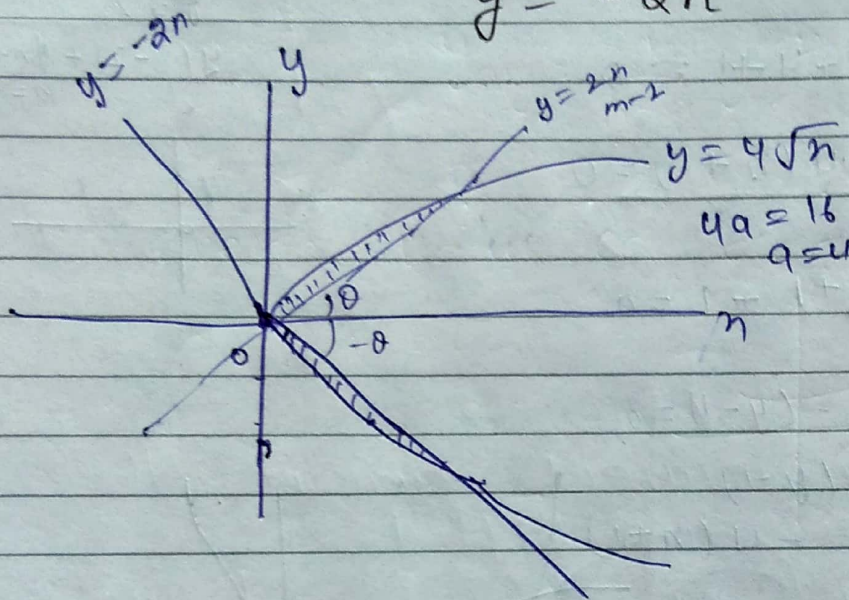 y =
y = -2x
y
y = 2x
m-2
y = 4√x
4a = 16
a=4
θ
x
-θ
O